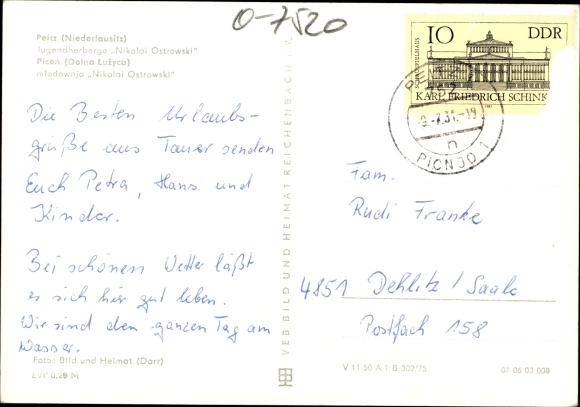 O-7520
Peitz (Niederlausitz)
Jugendherberge „Nikolai Ostrowski"
Picnń (Dolna Łužyca)
młodownja „Nikolai Ostrowski"
Die Besten Urlaubs-
grüße aus Tauer senden
Euch Petra, Hans und
Kinder.
Bei schönem Wetter läßt
es sich hier gut leben.
Wir sind den ganzen Tag am
Wasser.
Foto: Bild und Heimat (Darr)
EVP 0,20 M
VEB BILD UND HEIMAT REICHENBACH i. V.
10 DDR
SCHAUSPIELHAUS
KARL FRIEDRICH SCHINK
PEITZ 1
-9.-7.81.-19
n
PICNJO 1
Fam.
Rudi Franke
4851 Dehlitz/Saale
Postfach 158
V 11 50 A 1/B 302/75
01 06 03 008